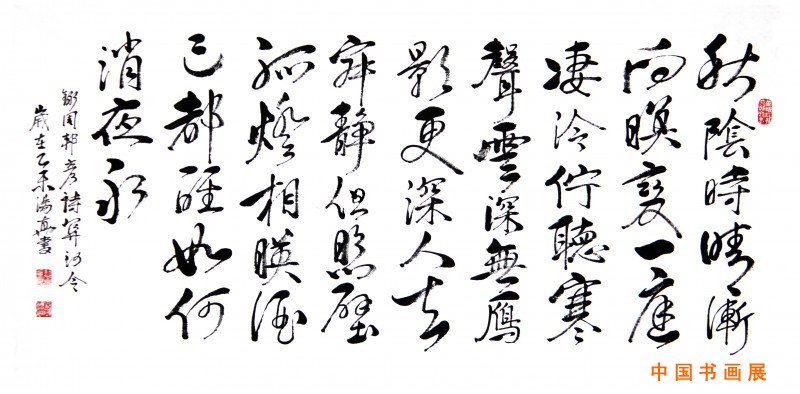 秋陰時晴漸
向暝變一庭
凄冷佇聽寒
聲雲深無鴈
影更深人去
寂靜但照壁
孤燈相暎酒
已都醒如何
消夜永
錄周邦彦詩關河令
歲在乙未海書
中国书画展